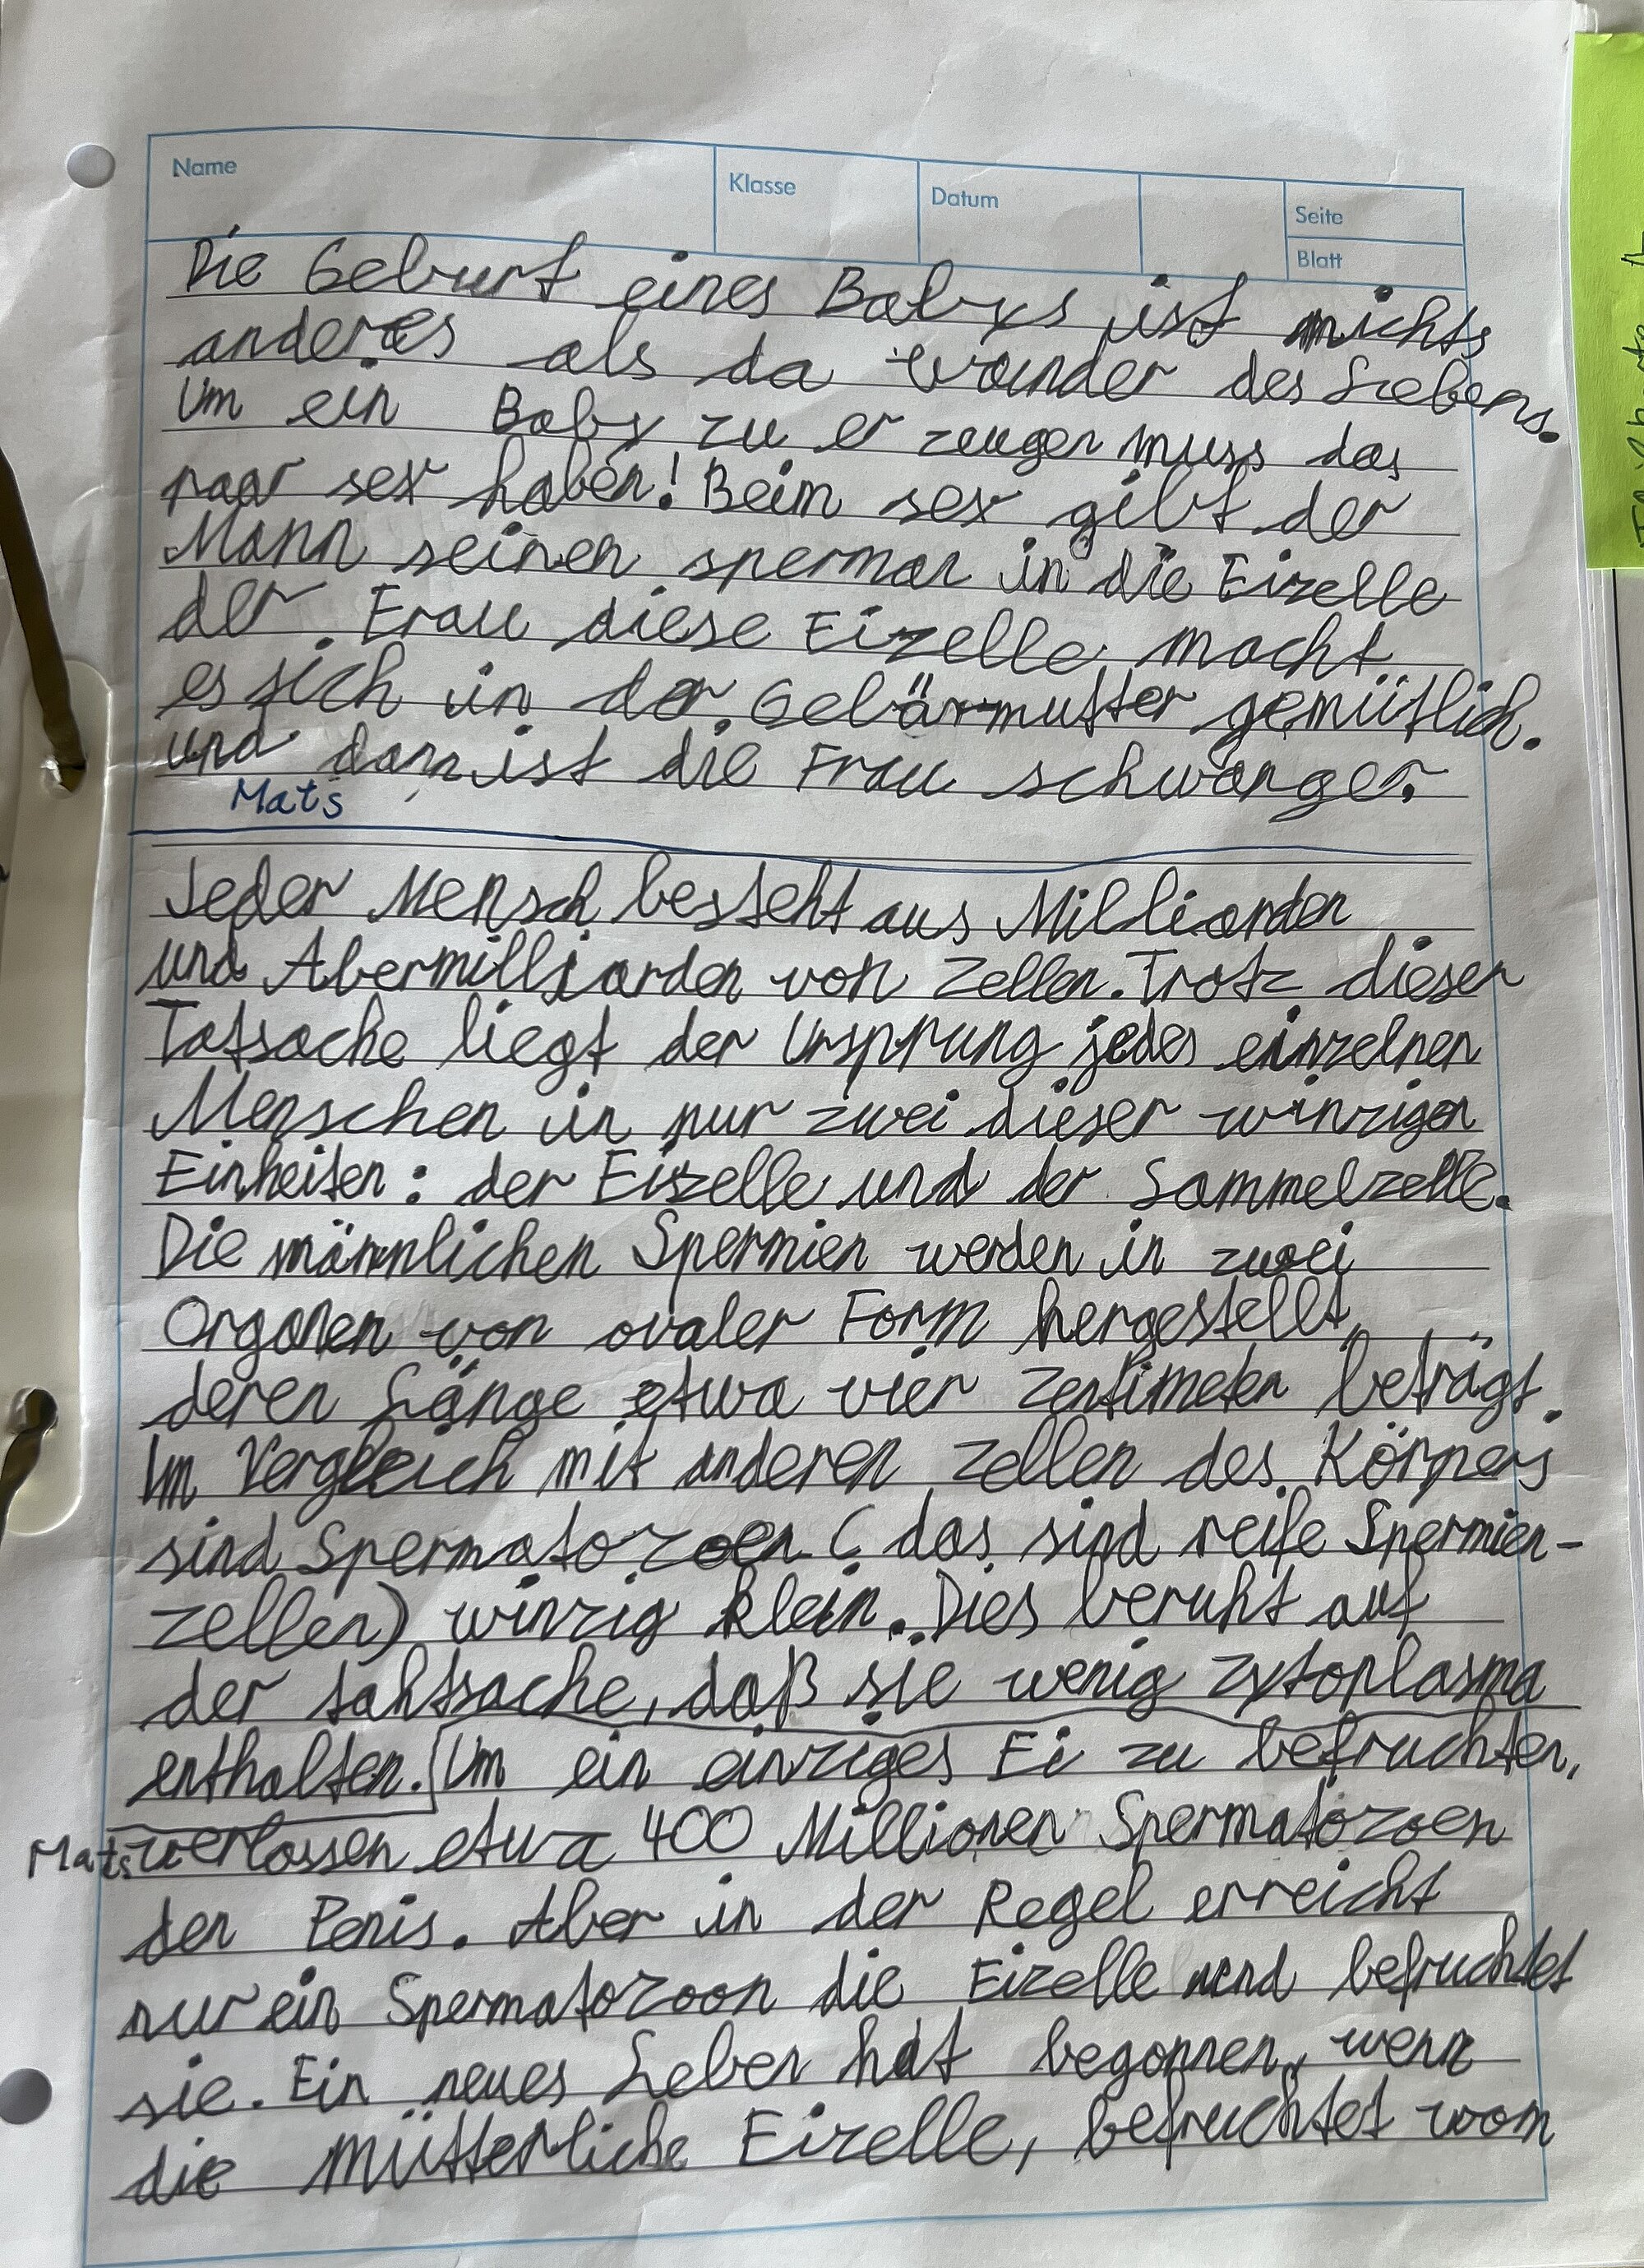 Name
Klasse
Datum
Seite
Blatt
Die Geburt eines Babys ist nichts
anderes als da wunder des Lebens.
Um ein Baby zu er zeugen muss das
paar sex haben! Beim sex gibt der
Mann seinen sperman in die Eizelle
der Frau diese Eizelle macht
es sich in der Gebärmutter gemütlich.
und dann ist die Frau schwanger.
Mats
Jeder Mensch besteht aus Milliarden
und Abermilliarden von Zellen. Trotz dieser
Tatsache liegt der Ursprung jedes einzelnen
Menschen in nur zwei dieser winzigen
Einheiten: der Eizelle und der Sammelzelle.
Die männlichen Spermien werden in zwei
Organen von ovaler Form hergestellt,
deren Länge etwa vier Zentimeter beträgt.
Im Vergleich mit anderen Zellen des Körpers
sind Spermatozoen (das sind reife Spermien-
zellen) winzig klein. Dies beruht auf
der tahtsache, daß sie wenig zytoplasma
enthalten. [Um ein einziges Ei zu befruchten,
Mats verlassen etwa 400 Millionen Spermatozoen
den Penis. Aber in der Regel erreicht
nur ein Spermatozoon die Eizelle und befruchtet
sie. Ein neues Leben hat begonnen, wenn
die mütterliche Eizelle, befruchtet vom